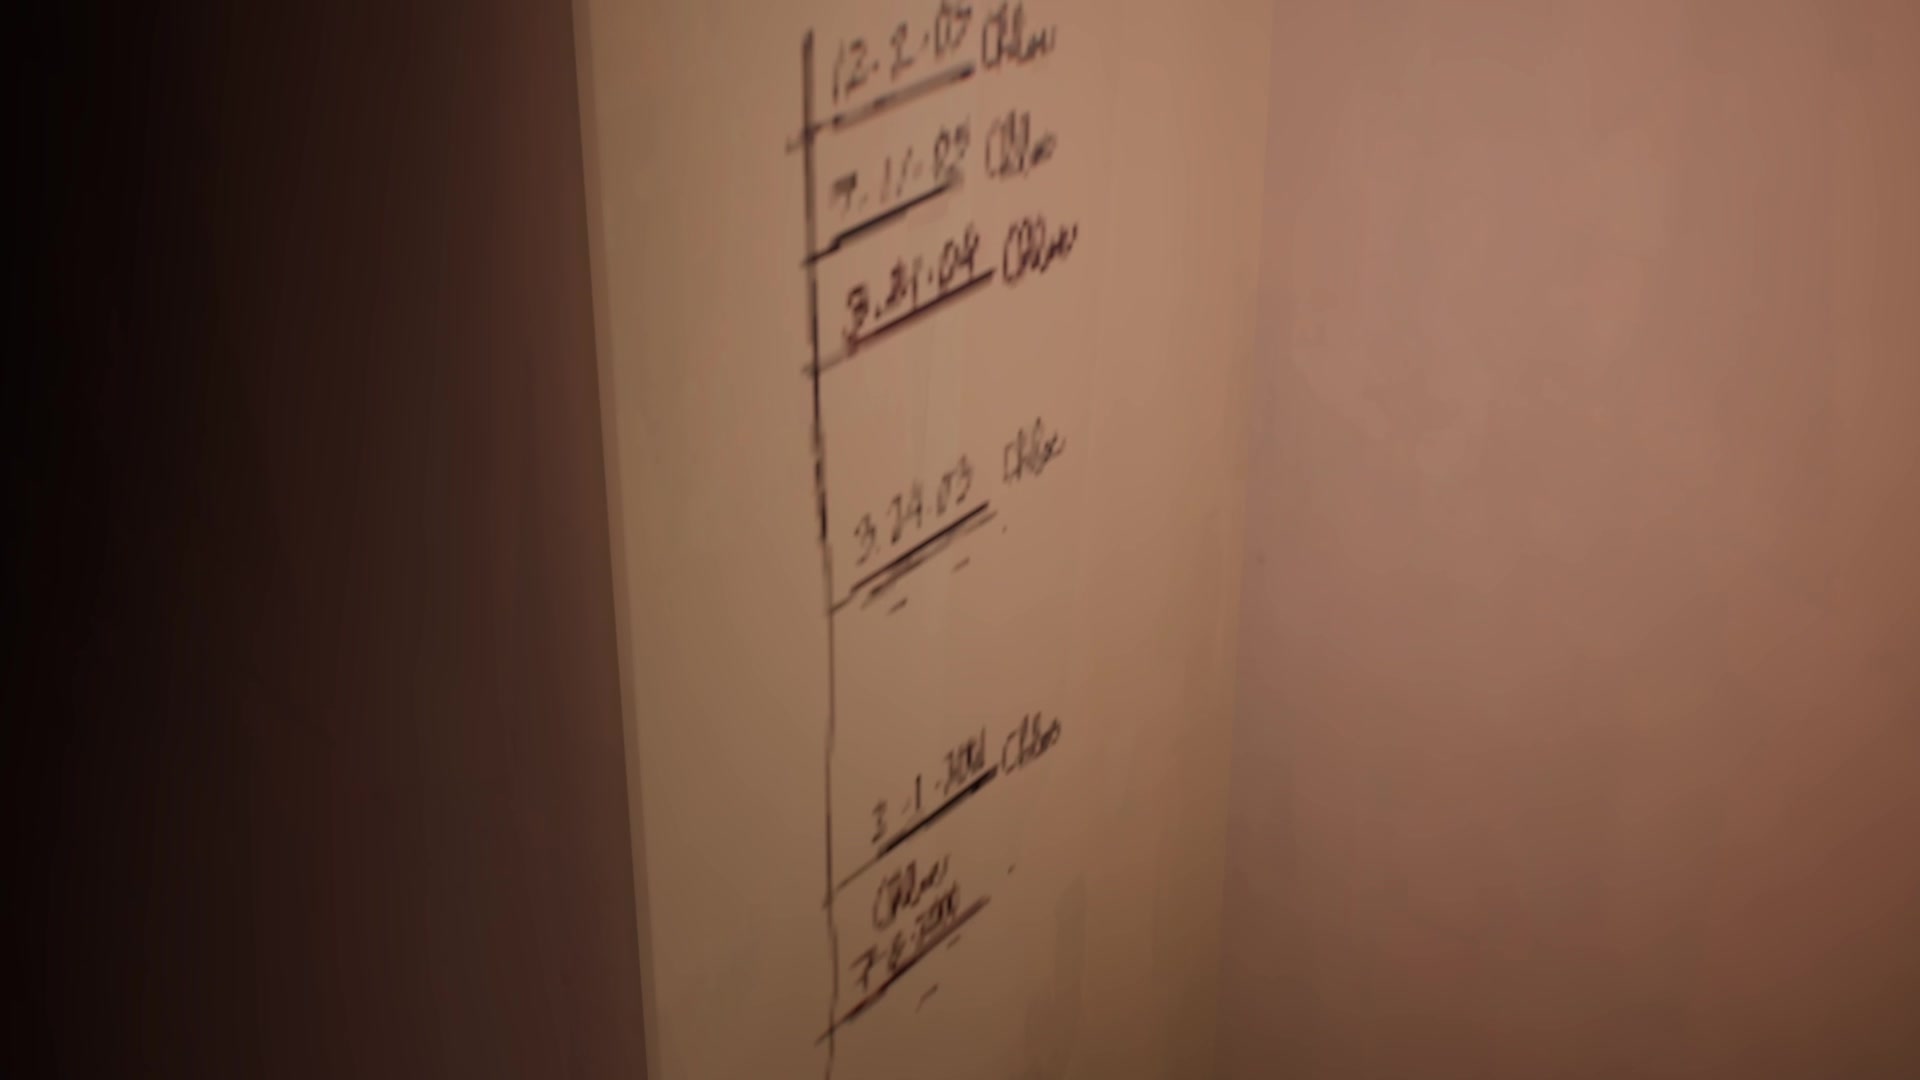 12.2.05 Chloe
7.11.05 Chloe
3.21.04 Chloe
3.24.03 Chloe
Chloe
Chloe